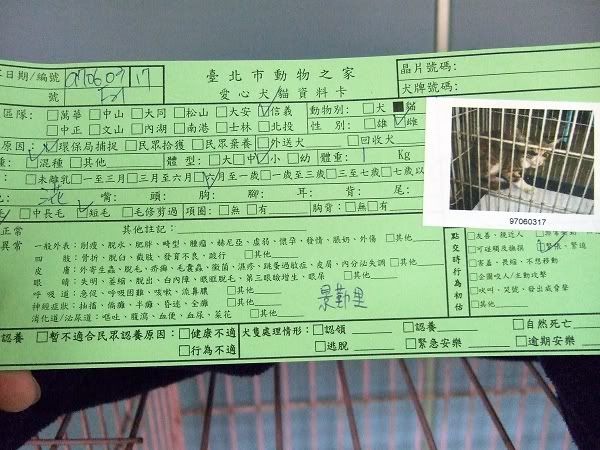 日期/編號 970603 17 臺北市動物之家 晶片號碼：
號 愛心犬貓資料卡 犬牌號碼：
區隊：□萬華□中山□大同□松山□大安☑信義 動物別：□犬■貓
□中正□文山□內湖□南港□士林□北投 性 別：□雄☑雌
原因：☑環保局捕捉□民眾拾獲□民眾棄養□外送犬□回收犬
種：☑混種□其他 體 型：□大□中☑小□幼 體重：1 Kg
□未離乳□一至三月□三至六月☑六月至一歲□一歲至三歲□三至七歲□七歲以
花 嘴： 頭： 胸： 腳： 耳： 背： 尾：
□中長毛☑短毛□毛修剪過 項圈：□無□有 胸背：□無□有
正常 其他註記：
97060317
異常 一般外表：削瘦、脫水、肥胖、畸型、腫瘤、赫尼亞、虛弱、懷孕、發情、脹奶、外傷□其他
四 肢：骨折、脫臼、截肢、發育不良、跛行 □其他
皮 膚：外寄生蟲、脫毛、疥癬、毛囊蟲、黴菌、濕疹、跳蚤過敏症、皮屑、內分泌失調□其他
眼 睛：失明、萎縮、脫出、白內障、眼眶脫毛、第三眼瞼增生、眼屎 □其他
呼 吸 道：急促、呼吸困難、咳嗽、流鼻膿 □其他
神經症狀：抽搐、偏癱、半癱、昏迷、全癱 □其他
消化道/泌尿道：嘔吐、腹瀉、血便、血尿、菜花 □其他
景勤里
點交時行為初估
□友善、親近人
□可碰觸及撫摸 ☑緊張、緊迫
□害羞、畏縮、不想移動
□企圖咬人/主動攻擊
□吠叫、哭號、發出威脅聲
□其他
認養 □暫不適合民眾認養原因：□健康不適 犬隻處理情形：□認領 □認養 □自然死亡
□行為不適 □逃脫 □緊急安樂 □逾期安樂